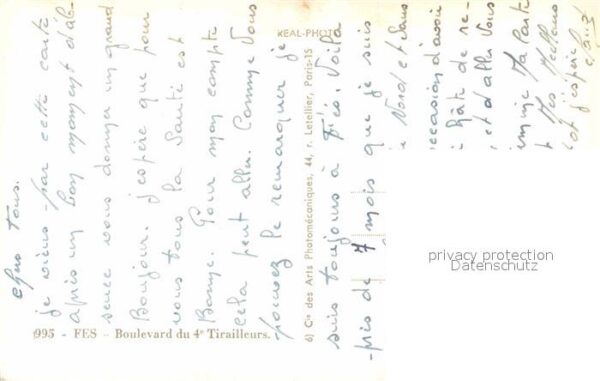 chers tous.
je viens par cette carte
après un bon moment d'ab
sence vous donner un grand
Bonjour. J'espère que pour
vous tous la Santé est
Bonne. Pour mon compte
cela peut aller. Comme Vous
pouvez le remarquer je
suis toujours à Fès. Voilà
près de 7 mois que je suis
Nord et dans
occasion d'avoir
hâte de re-
et d'aller Vous
Ma Carte
Mes Meilleurs
et j'espère
REAL-PHOTO
6) Cie des Arts Photomécaniques, 44, r. Letellier, Paris-15
995 - FES - Boulevard du 4e Tirailleurs.
privacy protection
Datenschutz